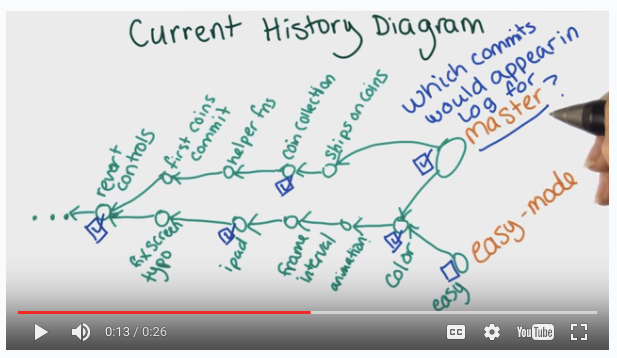 Current History Diagram
which commits
would appear in
log for
master?
revert
controls
first coins
commit
helper fns
coin collection
ships on coins
fix screen
typo
ipad
frame
interval
animation
color
easy
easy-mode
0:13 / 0:26
CC
YouTube